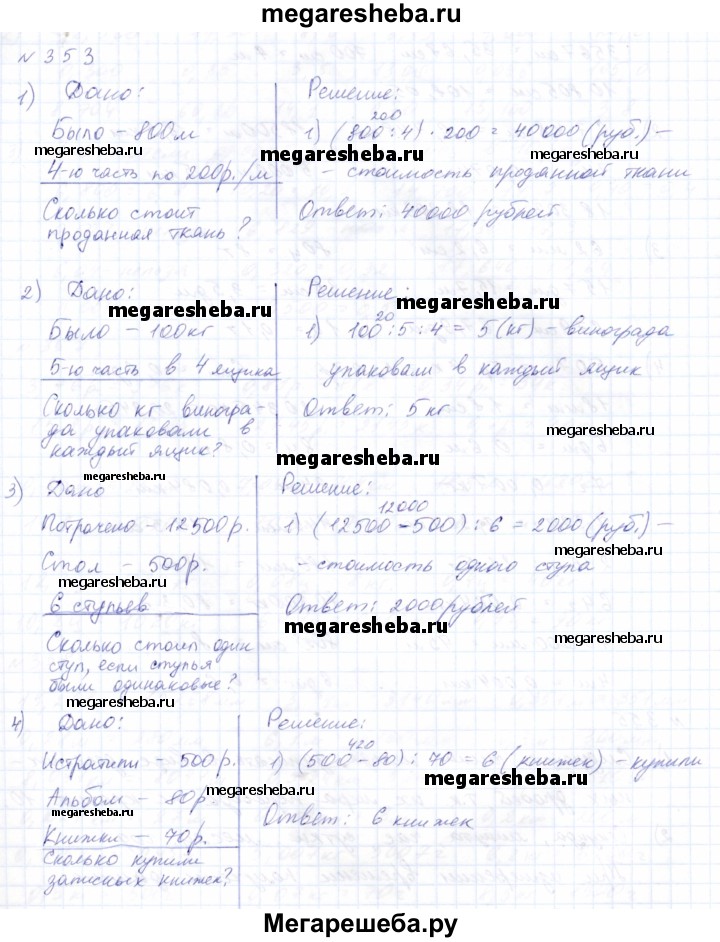 megaresheba.ru
№ 353
1) Дано:
Было – 800м
megaresheba.ru
4-ю часть по 200р./м
Сколько стоит
проданная ткань?
Решение:
200
1) (800 : 4) · 200 = 40000 (руб.) –
megaresheba.ru
megaresheba.ru
– стоимость проданной ткани
Ответ: 40000 рублей
2) Дано:
megaresheba.ru
Было – 100кг
5-ю часть в 4 ящика
Сколько кг виногра-
да упаковали в
каждый ящик?
Решение:
megaresheba.ru
20
1) 100 : 5 : 4 = 5 (кг) – винограда
упаковали в каждый ящик
Ответ: 5 кг
megaresheba.ru
megaresheba.ru
megaresheba.ru
3) Дано
Потрачено – 12500р.
Стол – 500р.
megaresheba.ru
6 стульев
Сколько стоил один
стул, если стулья
были одинаковые?
megaresheba.ru
Решение:
12000
1) (12500 – 500) : 6 = 2000 (руб.) –
megaresheba.ru
– стоимость одного стула
Ответ: 2000 рублей
megaresheba.ru
megaresheba.ru
4) Дано:
Истратили – 500р.
megaresheba.ru
Альбом – 80р.
megaresheba.ru
Книжки – 70р.
Сколько купили
записных книжек?
Решение:
420
1) (500 – 80) : 70 = 6 (книжек) – купили
megaresheba.ru
Ответ: 6 книжек
megaresheba.ru
Мегарешеба.ру